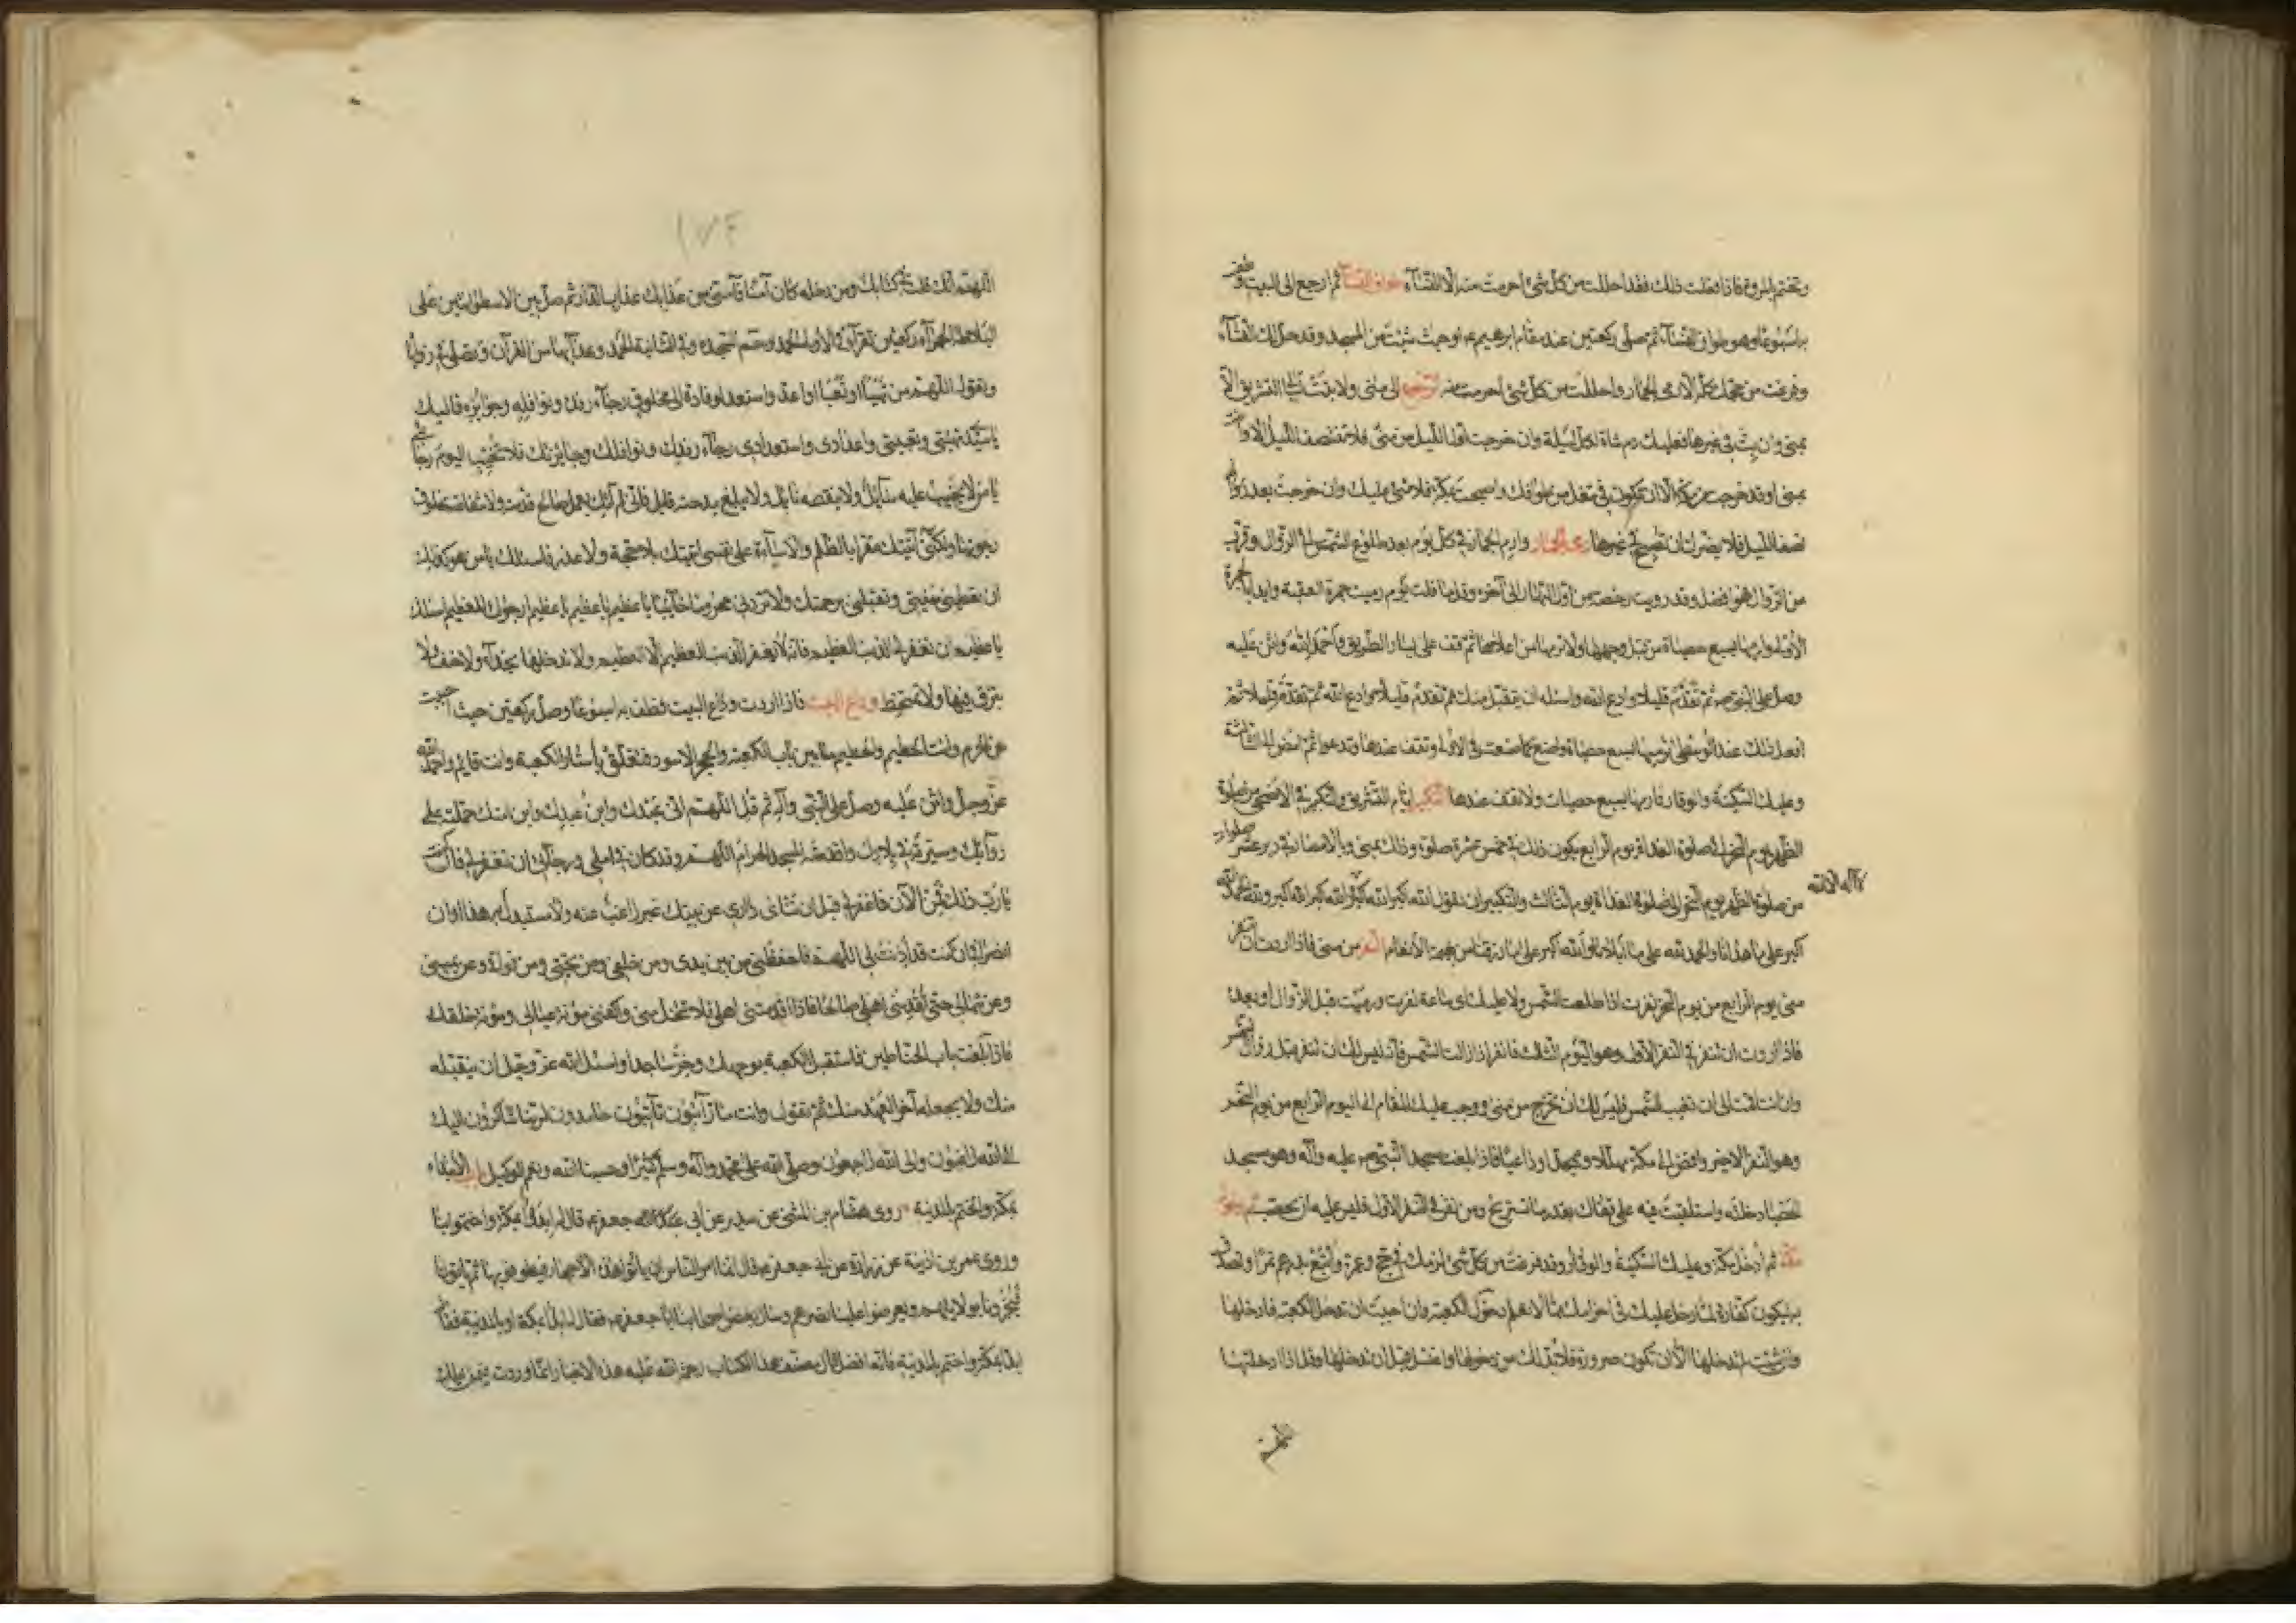 وتختم بالمروة فاذا فعلت ذلك فقد احللت من كل شئ احرمت منه الا النسآء طواف النسآء ثم ارجع الى البيت وطف
به اسبوعا وهو طواف النسآء ثم صلى ركعتين عند مقام ابرهيم ع او حيث شئت من المسجد وقد حل لك النسآء
وفرغت من حجك كله الا رمى الجمار واحللت من كل شئ احرمت منه الى منى ولا تبت ليالى التشريق الا
بمنى وان بت فى غيرها فعليك دم شاة لكل ليلة وان خرجت اول الليل من منى فلا تنتصف الليل الا وانت
بمنى او قد خرجت من مكة الا ان تكون فى شغل من طوافك واصبحت بمكة فلا شئ عليك وان خرجت بعد
نصف الليل فلا يضرك ان تصبح فى غيرها رمى الجمار وارم الجمار فى كل يوم بعد طلوع الشمس الى الزوال وقرب
من الزوال فهو افضل وقد رويت رخصة من اول النهار الى آخره وقل ما قلت يوم رميت جمرة العقبة وابدا بالجمرة
الاولى وارمها بسبع حصياة من قبل وجهها ولا ترمها من اعلاها ثم قف على يسار الطريق واحمد الله واثن عليه
وصل على النبى ص ثم تقدم قليلا وادع الله واسئله ان يتقبل منك ثم تقدم قليلا وادع الله ثم تقدم قليلا ثم
افعل ذلك عند الوسطى ترميها بسبع حصياة واصنع كما صنعت فى الاولى وتقف عندها وتدعو ثم امض الى الثالثة
وعليك السكينة والوقار فارمها بسبع حصيات ولا تقف عندها التكبير ايام التشريق والتكبير فى الاضحى من صلوة
الظهر يوم النحر الى صلوة الغداة يوم الرابع يكون ذلك فى خمس عشرة صلوة وذلك بمنى وبالامصار فى دبر عشر صلوات
من صلوة الظهر يوم النحر الى صلوة الغداة يوم الثالث والتكبير ان تقول الله اكبر الله اكبر الله اكبر الله اكبر ولله الحمد الله
لا اله الا الله
اكبر على ما هدانا والحمد لله على ما ابلانا والله اكبر على ما رزقنا من بهيمة الانعام النفر من منى فاذا اردت ان تنفر
من منى يوم الرابع من يوم النحر نفرت اذا طلعت الشمس ولا عليك اى ساعة نفرت ورميت قبل الزوال او بعده
فاذا اردت ان تنفر فى النفر الاول وهو اليوم الثالث فانفر اذا زالت الشمس فانه ليس لك ان تنفر قبل زوال الشمس
وان انت اقمت الى ان تغيب الشمس فليس لك ان تخرج من منى ووجب عليك المقام الى اليوم الرابع من يوم النحر
وهو النفر الاخير وامض الى مكة مهللا وممجدا وداعيا فاذا بلغت مسجد النبى ص عليه وآله وهو مسجد
الحصبا دخلته واستلقيت فيه على قفاك بقدر ما تستريح ومن نفر فى النفر الاول فليس عليه ان يحصب دخول
مكة ثم ادخل مكة وعليك السكينة والوقار وقد فرغت من كل شئ لزمك فى حج وعمرة وابتع بدرهم تمرا وتصدق
به ليكون كفارة لما دخل عليك فى احرامك مما لا تعلم دخول الكعبة وان احببت ان تدخل الكعبة فادخلها
وان شئت لم تدخلها الا ان تكون صرورة فلا بد لك من دخولها واغتسل قبل ان تدخلها وقل اذا دخلتها
اللهم
١٧٤
اللهم انك قلت فى كتابك ومن دخله كان آمنا فآمنى من عذابك عذاب النار ثم صل بين الاسطوانتين على
البلاطة الحمرآء ركعتين تقرآ فى الاولى الحمد وحم السجدة وفى الثانية الحمد وعد آياتها من القرآن وتصلى فى زواياه
وتقول اللهم من تهيأ او تعبا او اعد واستعد لوفادة الى مخلوق رجآء رفده ونوافله وجوايزه فاليك
يا سيدى تهيئتى وتعبيتى واعدادى واستعدادى رجآء رفدك ونوافلك وجايزتك فلا تخيب اليوم رجآئى
يا من لا يخيب عليه سآئل ولا ينقصه نايل ولا يبلغ مدحته قايل فانى لم آتك بعمل صالح قدمته ولا شفاعة مخلوق
رجوتها ولكنى اتيتك مقرا بالظلم والاسآءة على نفسى اتيتك بلا حجة ولا عذر فاسئلك يا من هو كذلك
ان تعطينى رغبتى وتقبلنى برحمتك ولا تردنى محروما خآئبا يا عظيم يا عظيم يا عظيم ارجوك للعظيم اسئلك
يا عظيم ان تغفر لى الذنب العظيم فانه لا يغفر الذنب العظيم الا العظيم ولا تدخلها بحذآء ولا خف ولا
تبزق فيها ولا تمتخط وداع البيت فاذا اردت وداع البيت فطف به اسبوعا وصل ركعتين حيث احببت
من الحرم وائت الحطيم والحطيم ما بين باب الكعبة والحجر الاسود فتعلق بأستار الكعبة وانت قايم واحمد الله
عز وجل واثن عليه وصل على النبى وآله ثم قل اللهم انى عبدك وابن عبدك وابن امتك حملته على
دوآبك وسيرته فى بلادك واقدمته المسجد الحرام اللهم وقد كان فى املى ورجآئى ان تغفر لى فان كنت
يا رب ذلك فمن الآن فاغفر لى قبل ان تنأى دارى عن بيتك غير راغب عنه ولا مستبدل به هذا اوان
انصرافى ان كنت قد اذنت لى اللهم فاحفظنى من بين يدى ومن خلفى ومن تحتى ومن فوقى وعن يمينى
وعن شمالى حتى تقدمنى اهلى صالحا فاذا اقدمتنى اهلى فلا تخل منى واكفنى مؤنة عيالى ومؤنة خلقك
فاذا بلغت باب الحناطين فاستقبل الكعبة بوجهك وخر ساجدا واسئل الله عز وجل ان يتقبله
منك ولا يجعله آخر العهد منك ثم تقول وانت مار آئبون تآئبون حامدون لربنا شاكرون اليك
الى الله راغبون والى الله راجعون وصلى الله على محمد وآله وسلم كثيرا وحسبنا الله ونعم الوكيل باب الابتداء
بمكة والختم بالمدينة روى هشام بن المثنى عن سدير عن ابى جعفر ع قال ابدؤا بمكة واختموا بنا
وروى عمر بن اذينة عن زرارة عن ابى جعفر ع قال انما امر الناس ان يأتوا هذه الاحجار فيطوفوا بها ثم يأتونا
فيخبرونا بولايتهم ويعرضوا علينا نصرهم وسأل بعض اصحابنا ابا جعفر ع فقال ابدأ بمكة او بالمدينة فقال
ابدا بمكة واختم بالمدينة فانه افضل قال مصنف هذا الكتاب رحمة الله عليه هذه الاخبار انما وردت فيمن يملك